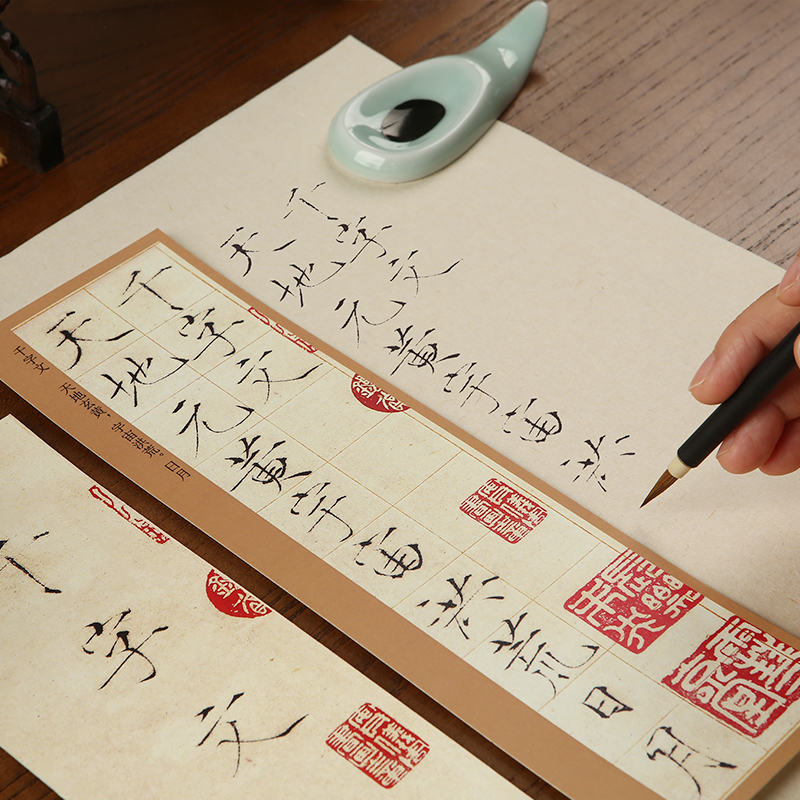 千字文
天地元黄宇宙洪
千字文
天地元黄宇宙洪荒日月
千字文 天地玄黄,宇宙洪荒。日月
千字文